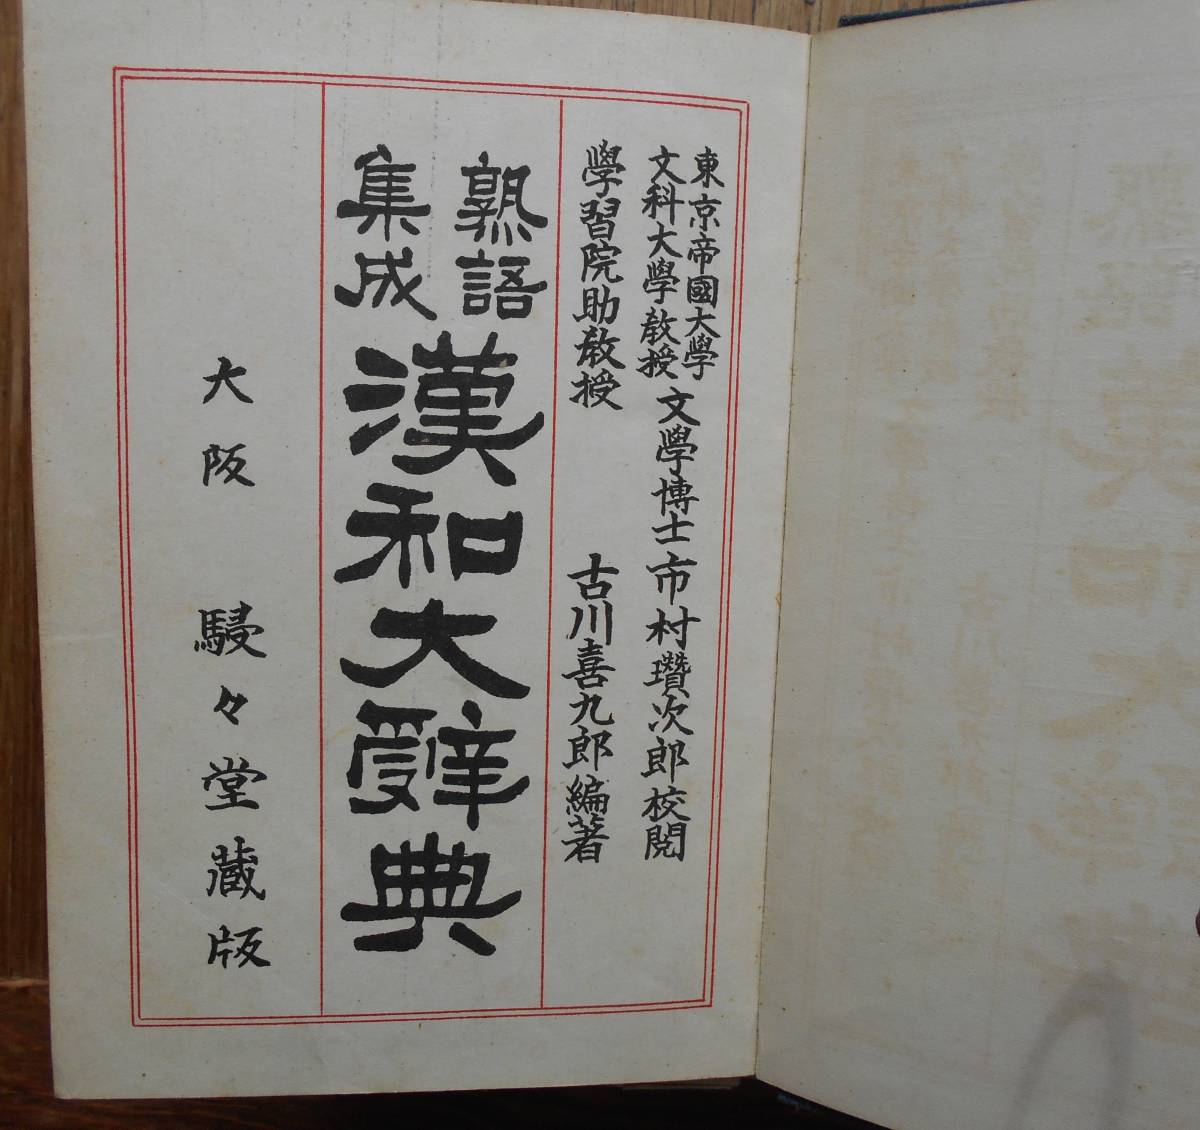 東京帝國大學
文科大學教授
文學博士市村瓚次郎校閱
學習院助教授 古川喜九郎編著
熟語
集成
漢和大辭典
大阪 駸々堂藏版